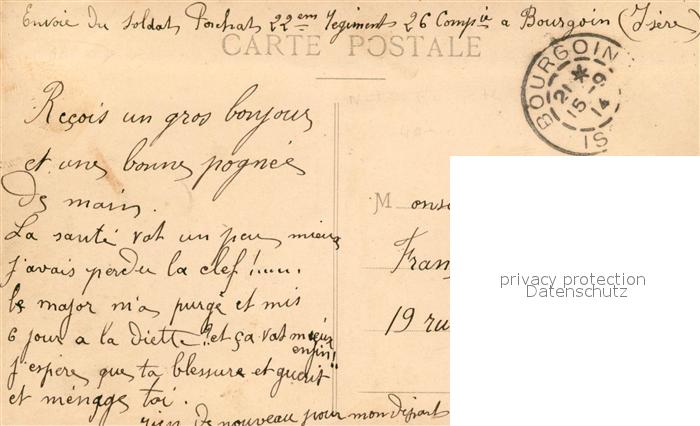 Envoie du Soldat Ponchat 22em Regiment 26 Compie a Bourgoin (Isère)
CARTE POSTALE
BOURGOIN
21 *
15-9
14
IS
Reçois un gros bonjour
et une bonne pognée
De main.
La santé vat un peu mieux
j'avais perdu la clef !......
le major m'a purgé et mis
6 jour a la diette !! et ça vat mieux
enfin !!
j'espère que ta blessure et guerit
et ménage toi.
rien de nouveau pour mon départ
Monsi
Fran
19 ru
privacy protection
Datenschutz